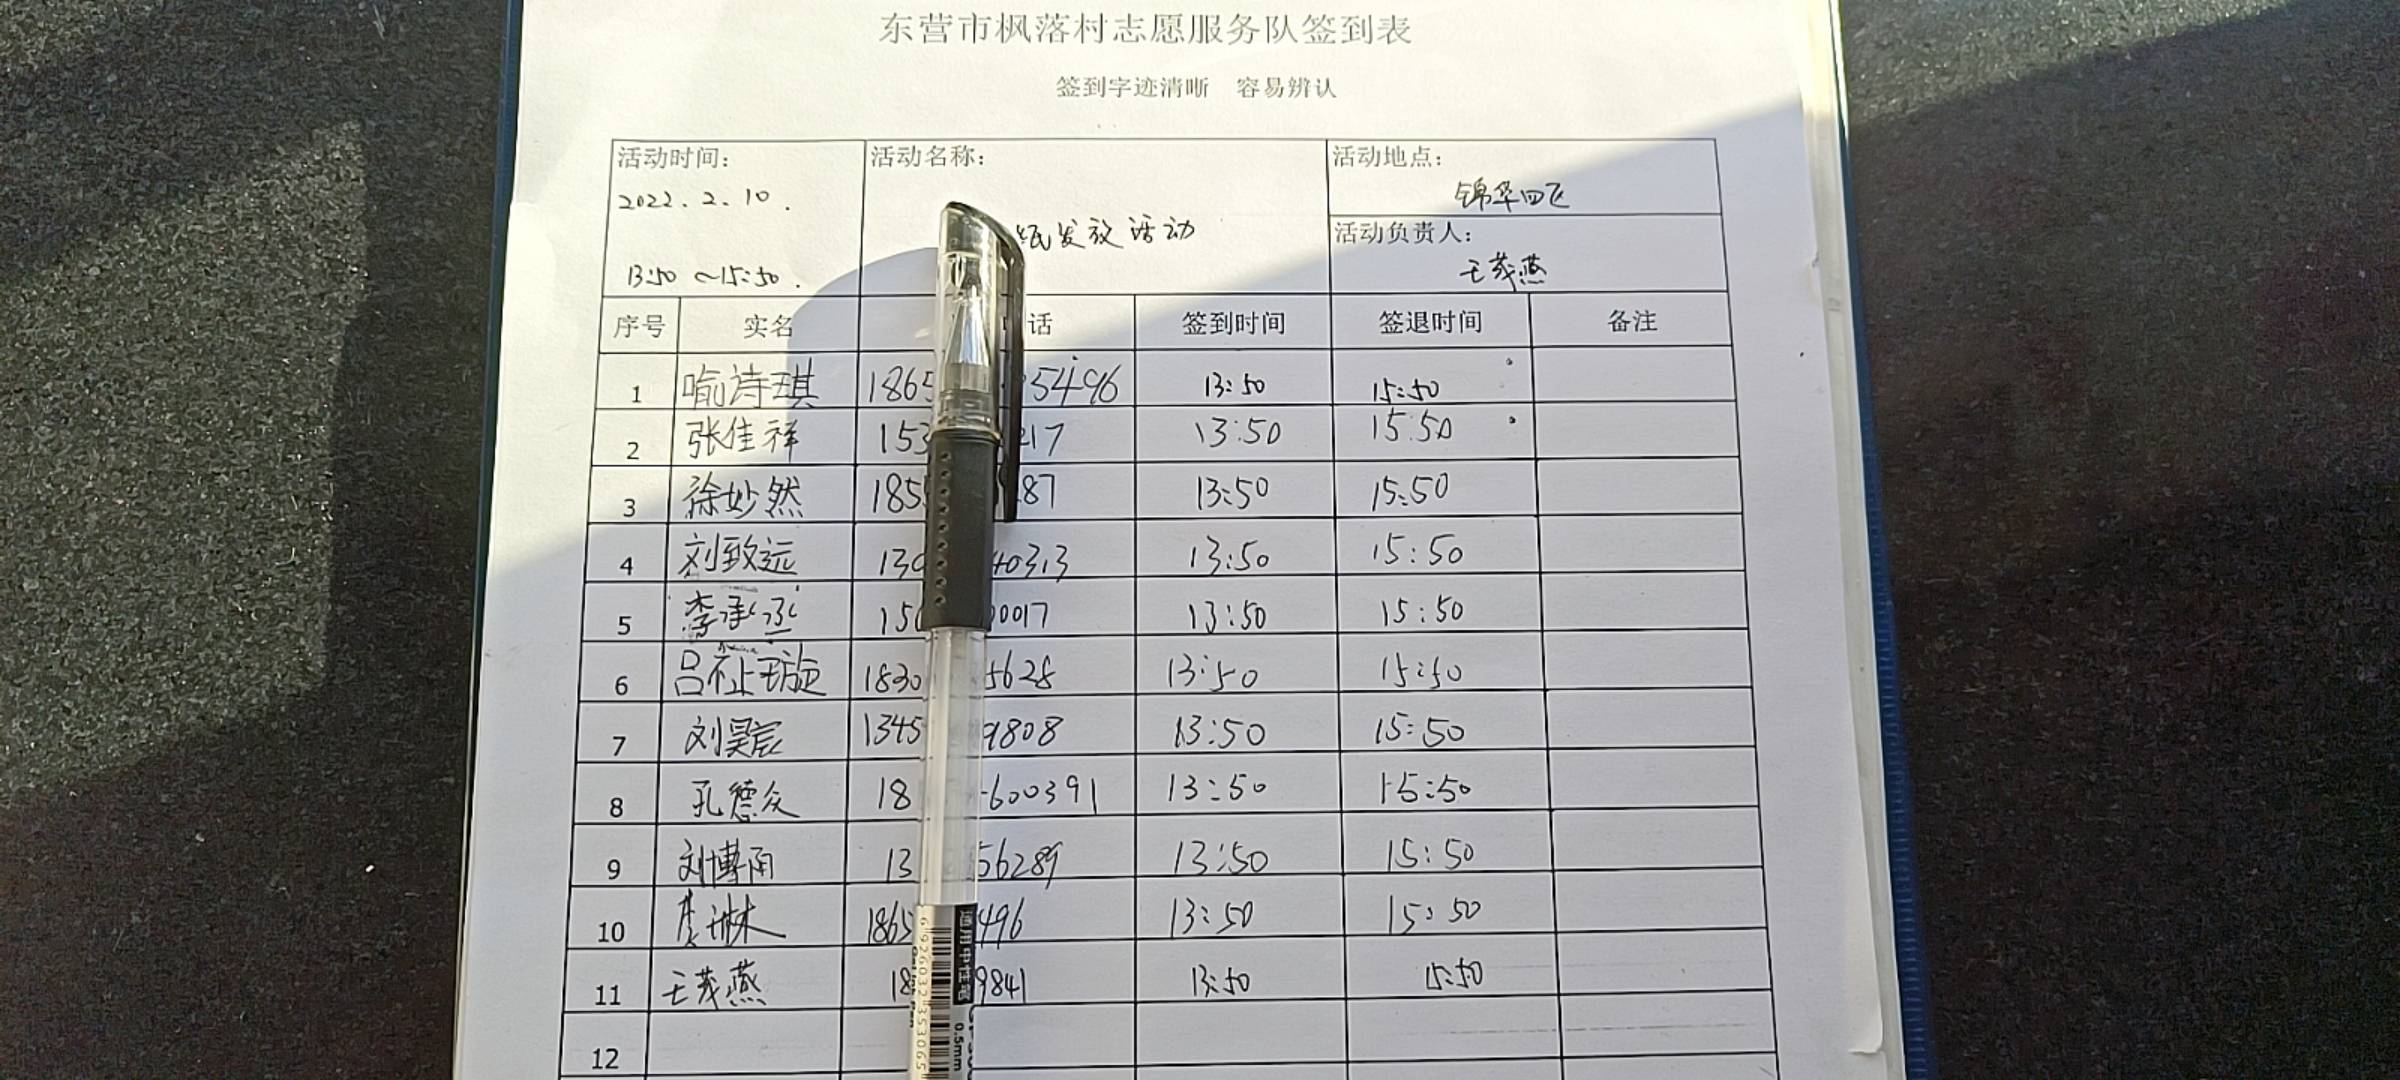 东营市枫落村志愿服务队签到表
签到字迹清晰 容易辨认
活动时间： 活动名称： 活动地点：
2022.2.10. 锦华四区
纸发放活动 活动负责人：
13:50 ~15:50. 王茂燕
序号 实名 话 签到时间 签退时间 备注
1 喻诗琪 1865 5496 13:50 15:50
2 张佳祥 153 17 13:50 15:50
3 徐妙然 185 87 13:50 15:50
4 刘致远 130 40313 13:50 15:50
5 李承 150 0017 13:50 15:50
6 吕祉璇 1830 5628 13:50 15:50
7 刘昊宸 1345 9808 13:50 15:50
8 孔德众 18 600391 13:50 15:50
9 刘博雨 13 56289 13:50 15:50
10 彦琳 1865 496 13:50 15:50
11 王茂燕 18 9841 13:50 15:50
12
通用中性笔
6926032353065
0.5mm